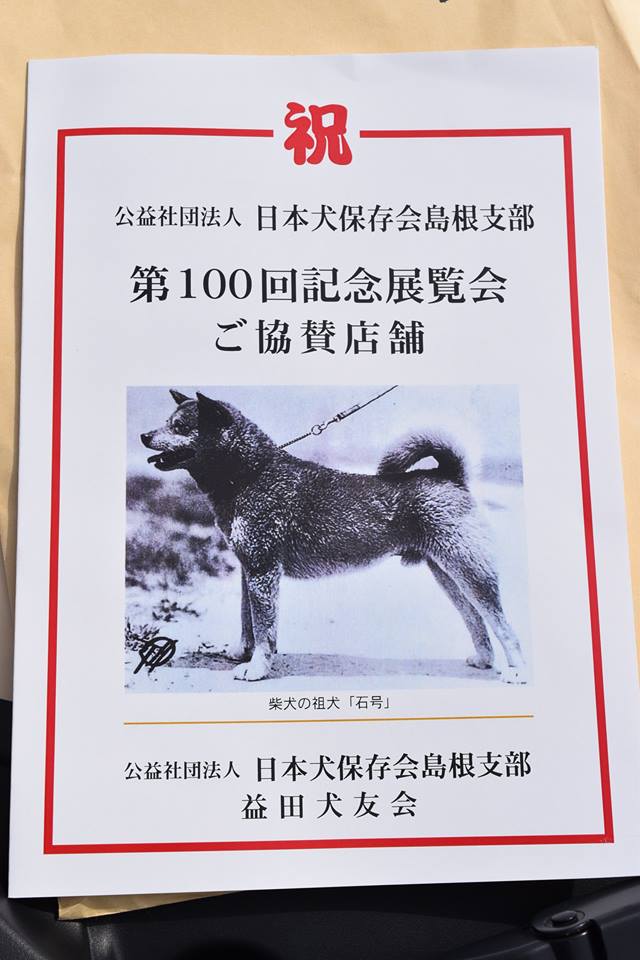 祝
公益社団法人 日本犬保存会島根支部
第100回記念展覧会
ご協賛店舗
柴犬の祖犬「石号」
公益社団法人 日本犬保存会島根支部
益田犬友会